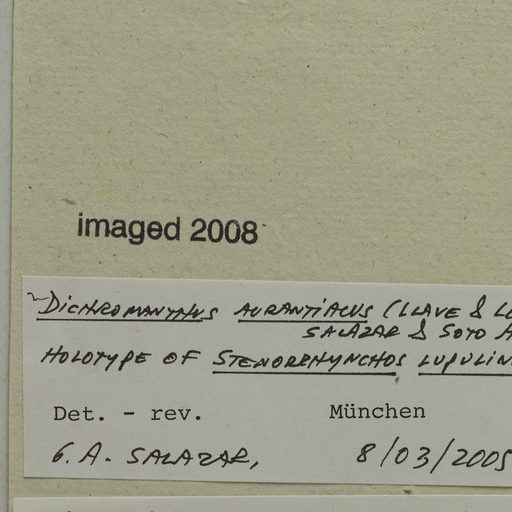 imaged 2008
DICHROMANTHUS AURANTIACUS (LLAVE &
SALAZAR & SOTO
HOLOTYPE OF STENORRHYNCHOS
Det. - rev. München
G. A. SALAZAR, 8/03/2005